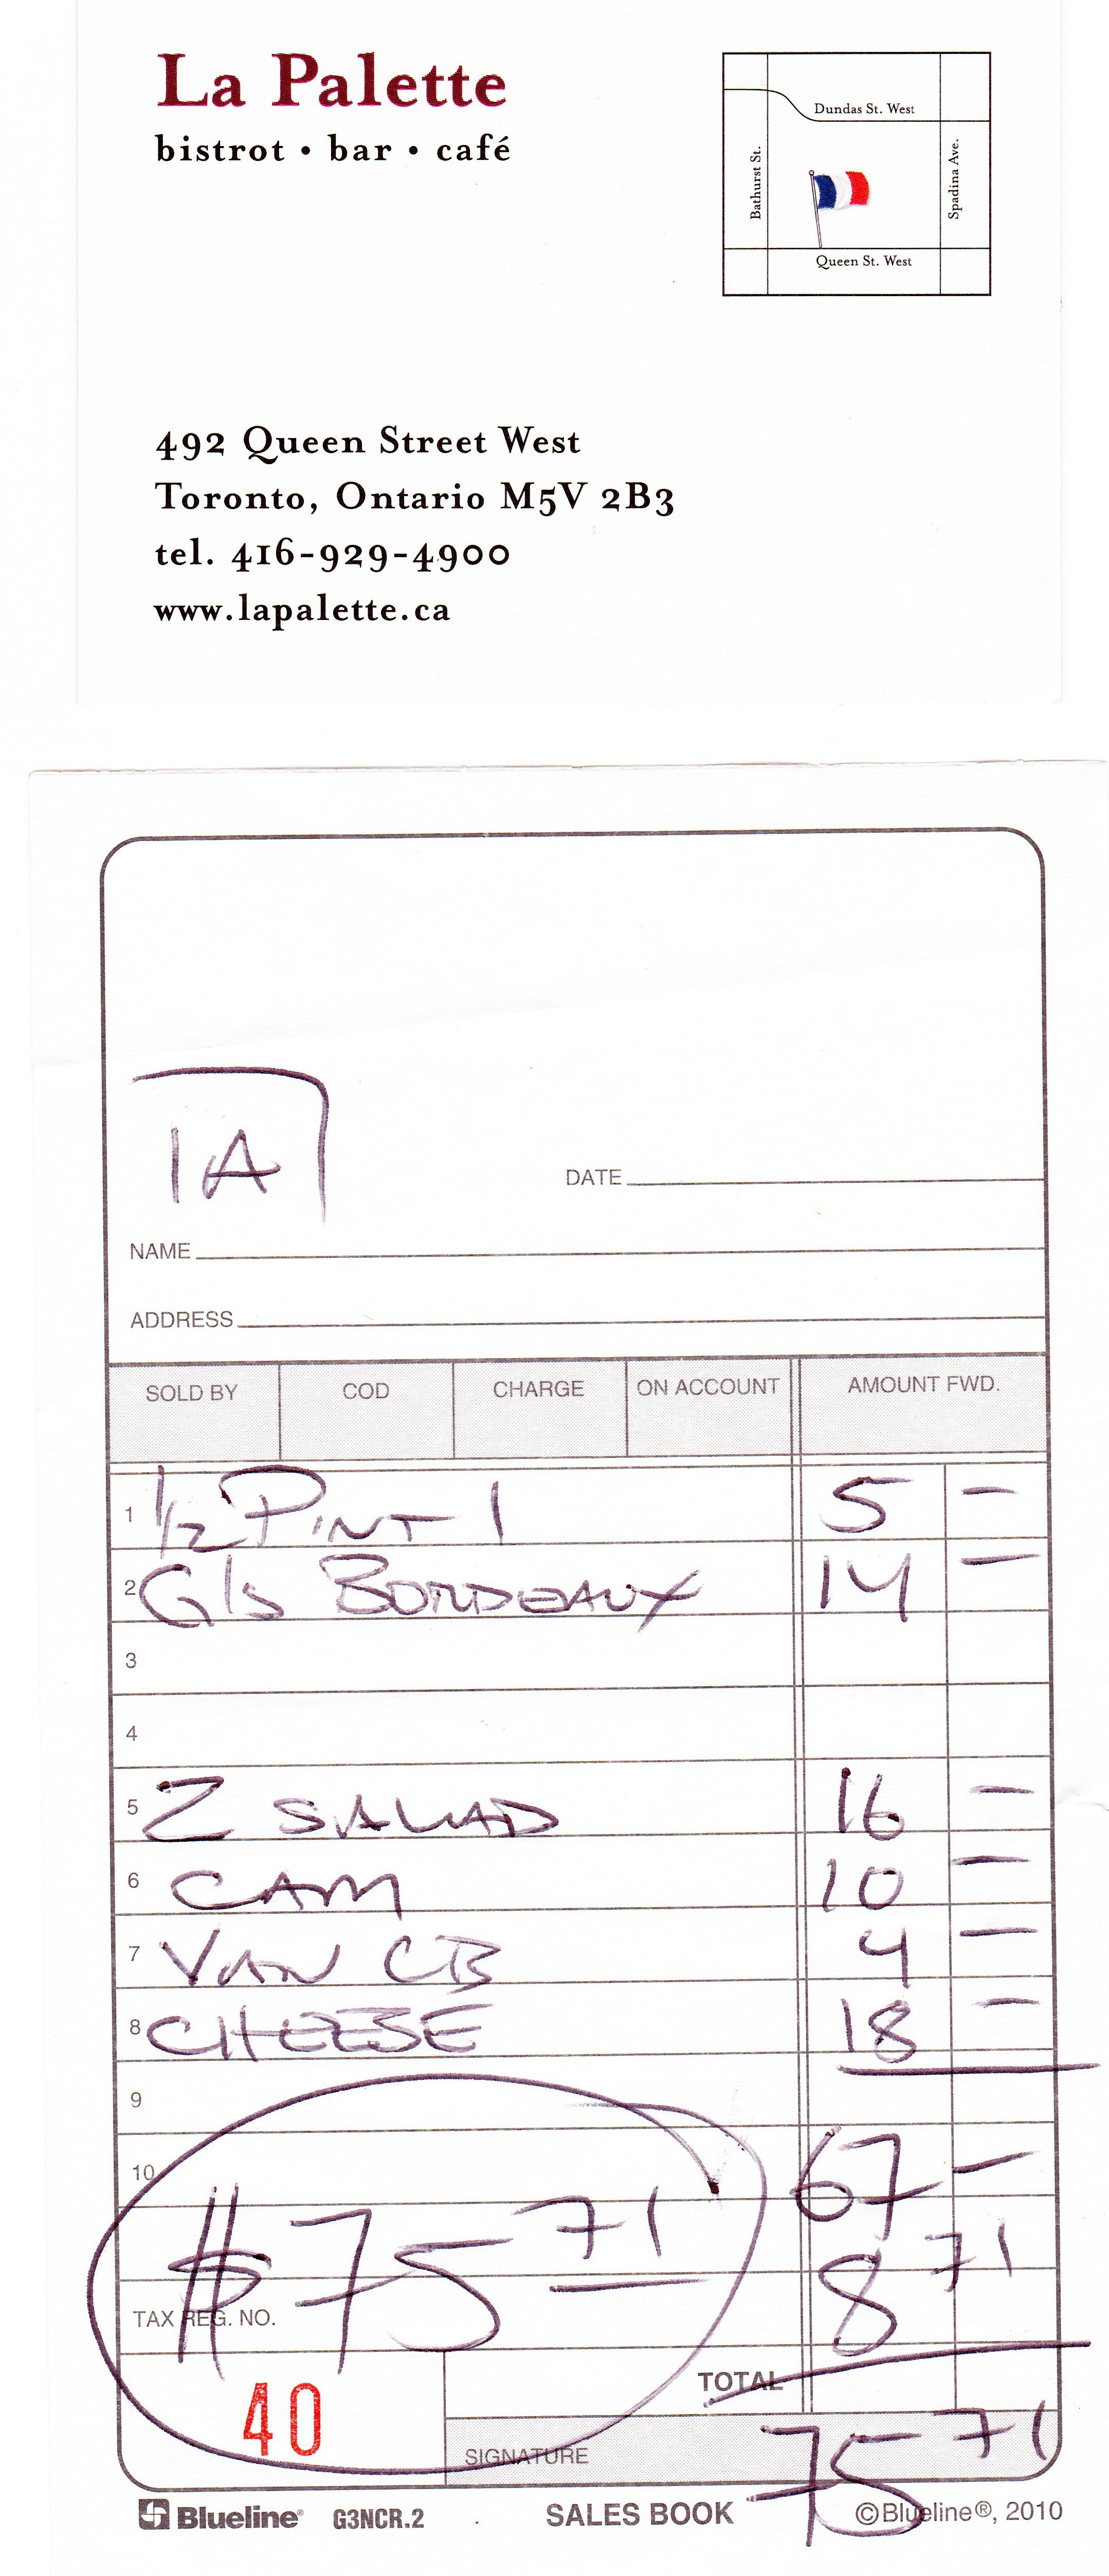 La Palette
bistrot • bar • café
Dundas St. West
Bathurst St.
Spadina Ave.
Queen St. West
492 Queen Street West
Toronto, Ontario M5V 2B3
tel. 416-929-4900
www.lapalette.ca
1A
DATE
NAME
ADDRESS
SOLD BY COD CHARGE ON ACCOUNT AMOUNT FWD.
1 1/2 PINT 1 5 —
2 Gls BORDEAUX 14 —
3
4
5 2 SALAD 16 —
6 CAM 10 —
7 VAN CB 4 —
8 CHEESE 18 —
9
10 67 —
$75 71 8 71
TAX REG. NO.
40 TOTAL
SIGNATURE 75 71
Blueline® G3NCR.2 SALES BOOK ©Blueline®, 2010